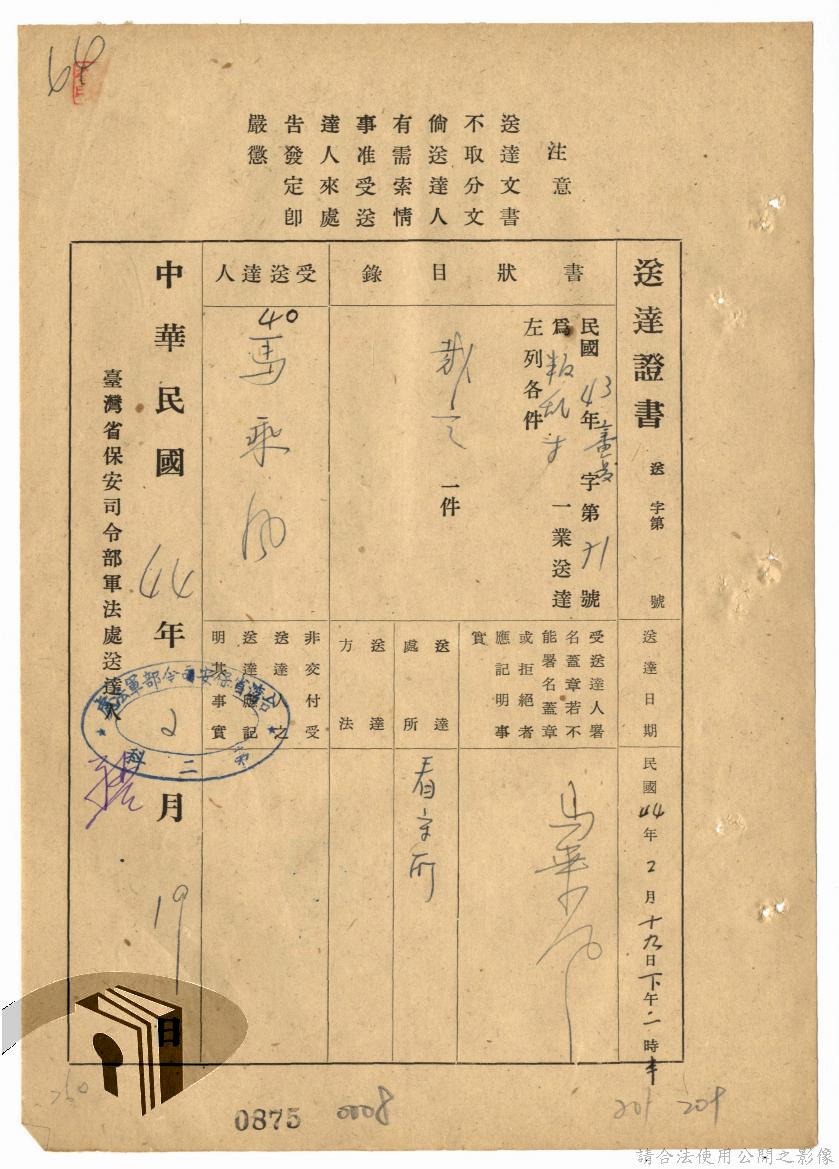 64
注意
送達文書
不取分文
倘送達人
有需索情
事准受送
達人來處
告發定卽
嚴懲
送達證書
送 字第 號
送達日期
民國44年2月十九日下午二時半
書狀目錄
民國43年 字第71號
為叛亂 一業送達
左列各件
裁定 一件
受送達人署
名蓋章若不
能署名蓋章
或拒絕者
應記明事
實
馬乘風
送達處所
看守所
送達方法
受送達人
40
馬乘風
非交付受
送達人之
送達應記
明其事實
中華民國44年2月19日
臺灣省保安司令部軍法處送達人
台灣省保安司令部軍法處
第二科
260
0875
0008
201
209
請合法使用公開之影像